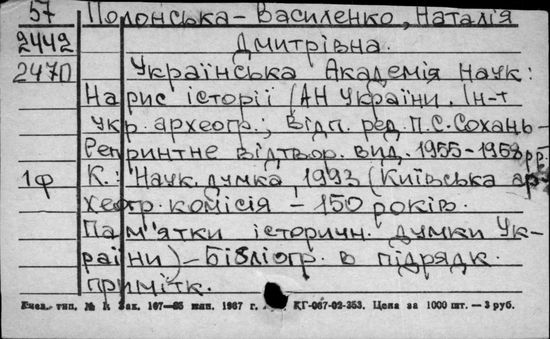 57 Полонська-Василенко, Наталія
2442 Дмитрівна.
247П Українська Академія Наук:
Нарис історії (АН України. Ін-т
укр. археогр.; Відп. ред. П.С. Сохань –
Репринтне відтвор. вид. 1955-1958 рр.
1ф К.: Наук. думка, 1993 (Київська ар-
хеогр. комісія – 150 років.
Пам'ятки історичн. думки Ук-
раїни) – Бібліогр. в підрядк.
примітк.
тип. № Зак. 107—85 1967 г. КГ-067-02-353. Цена за 1000 шт. — 3 руб.